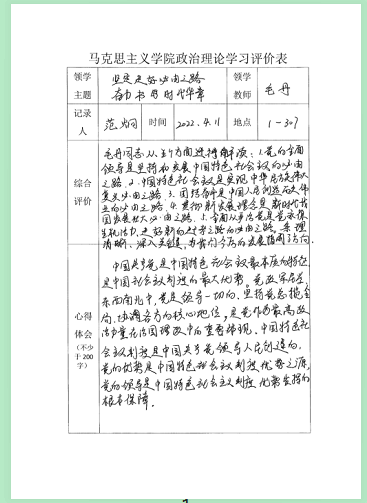 马克思主义学院政治理论学习评价表
领学主题
坚定走好必由之路
奋力书写时代华章
领学教师
毛丹
记录人
范炯
时间
2022.4.11
地点
1-307
综合评价
毛丹同志从五个方面进行解读：1.党的全面
领导是坚持和发展中国特色社会主义的必由
之路. 2.中国特色社会主义是实现中华民族伟大
复兴必由之路. 3.团结奋斗是中国人民创造历史伟
业的必由之路. 4.贯彻新发展理念是新时代我
国发展壮大必由之路. 5.全面从严治党是党永葆
生机活力、走好新的赶考之路的必由之路. 条理
清晰、深入浅出，为我们今后的发展指明了方向.
心得体会
（不少于200字）
中国共产党是中国特色社会主义最本质的特征
是中国社会主义制度的最大优势。党政军民学，
东西南北中，党是领导一切的，坚持党总揽全
局、协调各方的核心地位，是党作为最高政
治力量在治国理政中的重要体现。中国特色社
会主义制度是中国共产党领导人民创造的，
党的优势是中国特色社会主义制度优势之源，
党的领导是中国特色社会主义制度优势发挥的
根本保障.